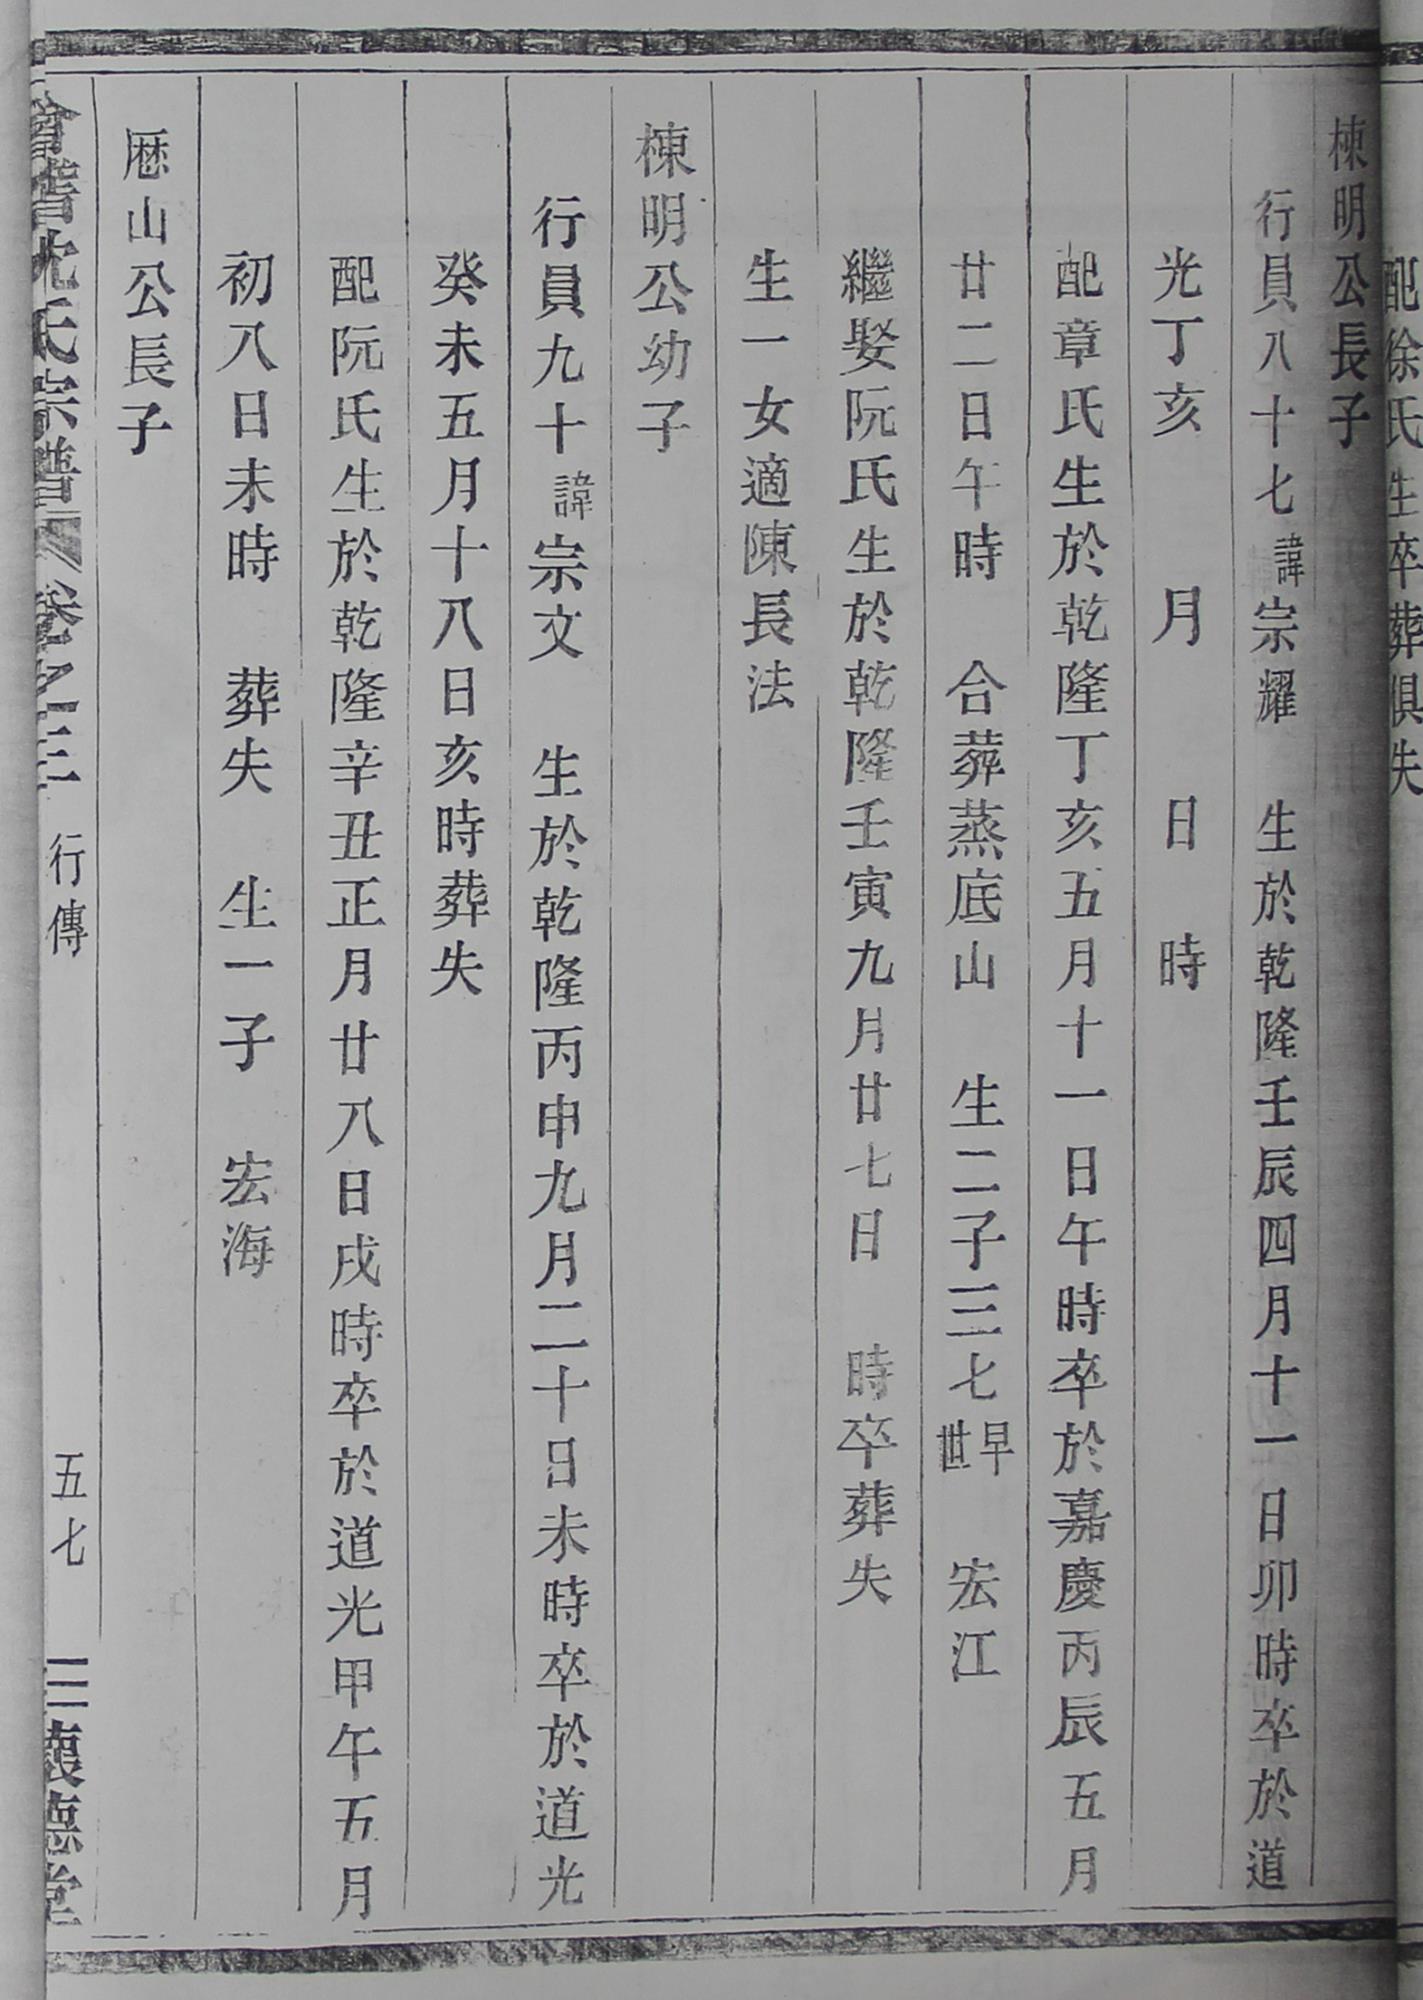 配徐氏生卒葬俱失
棟明公長子
行員八十七諱宗耀　生於乾隆壬辰四月十一日卯時卒於道
光丁亥　月　日　時
配章氏生於乾隆丁亥五月十一日午時卒於嘉慶丙辰五月
廿二日午時　合葬蒸底山　生二子三七早世　宏江
繼娶阮氏生於乾隆壬寅九月廿七日　時卒葬失
生一女適陳長法
棟明公幼子
行員九十諱宗文　生於乾隆丙申九月二十日未時卒於道光
癸未五月十八日亥時葬失
配阮氏生於乾隆辛丑正月廿八日戌時卒於道光甲午五月
初八日未時　葬失　生一子　宏海
厯山公長子
會稽沈氏宗譜　卷 行傳　五七　懷德堂